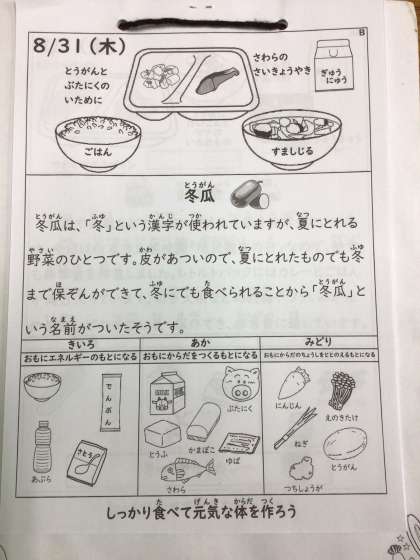 B
8/31(木)
とうがんと
ぶたにくの
いために
さわらの
さいきょうやき
ぎゅう
にゅう
ごはん
すましじる
とうがん
冬瓜
冬瓜は、「冬」という漢字が使われていますが、夏にとれる
野菜のひとつです。皮があついので、夏にとれたものでも冬
まで保ぞんができて、冬にでも食べられることから「冬瓜」と
いう名前がついたそうです。
きいろ
おもにエネルギーのもとになる
でんぷん
あぶら
さとう
あか
おもにからだをつくるもとになる
ぶたにく
とうふ
かまぼこ
ゆば
さわら
みどり
おもにからだのちょうしをととのえるもとになる
にんじん
えのきたけ
ねぎ
とうがん
つちしょうが
しっかり食べて元気な体を作ろう